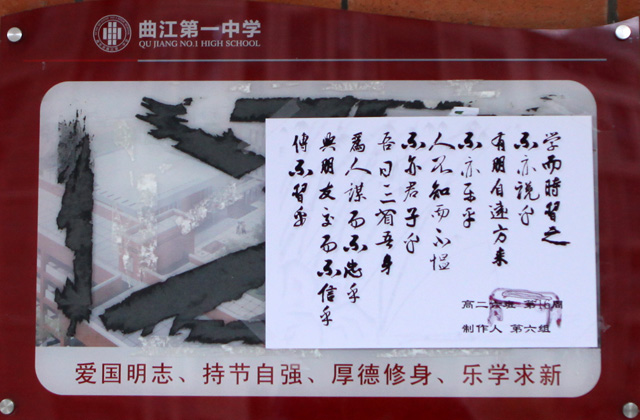 曲江第一中学
QU JIANG NO.1 HIGH SCHOOL
学而時習之
不亦説乎
有朋自遠方来
不亦乐乎
人不知而不愠
不亦君子乎
吾日三省吾身
爲人謀而不忠乎
與朋友交而不信乎
傳不習乎
高二 班 第16周
制作人 第六组
爱国明志、持节自强、厚德修身、乐学求新